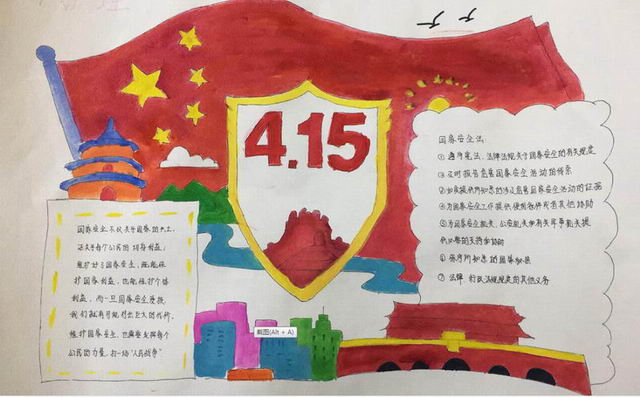 4.15
国家安全不仅关乎国家的兴亡，
还关乎每个公民的切身利益；
维护好了国家安全，既能维
护国家利益，也能维护个体
利益，而一旦国家安全受损，
我们就有可能付出巨大的代价。
维护国家安全，也需要发挥每个
公民的力量，打一场"人民战争"
国家安全法：
①遵守宪法、法律法规关于国家安全的有关规定
②及时报告危害国家安全活动的线索
③如实提供所知悉的涉及危害国家安全活动的证据
④为国家安全工作提供便利条件或者其他协助
⑤为国家安全机关、公安机关和有关军事机关提
供必要的支持和协助
⑥保守所知悉的国家秘密
⑦法律、行政法规规定的其他义务
截图(Alt + A)